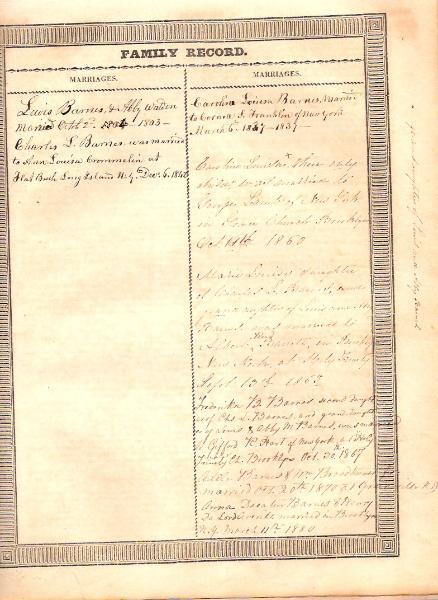 FAMILY RECORD.
MARRIAGES.
Lewis Barnes, & Abby Walden
Married Octb 2d. 1804 1803 -
Charles L. Barnes was married
to Ann Louisa Crommelin at
Flat Bush Long Island N.Y. Dec. 6. 1840
MARRIAGES.
Caroline Louisa Barnes, Married
to Corns. S. Franklin of New York
March 6. 1837 - 1837 -
Caroline their only
to
George of New York
in Grace Church Brooklyn
Oct 1860
Maria Louisa daughter
of Charles L. Barnes, and
grand daughter of Lewis and
Barnes was married to
Albert in Brooklyn
New York, at Holy Trinity
Sept 13th 186
Frederika B. Barnes second daught
er of Chs L. Barnes, and grand daughter
of Lewis & Abby M Barnes, was married
to Gifford Hart of New York, at Holy
Trinity Ch. Brooklyn Oct. 30th 1867
Barnes & Wm
married Oct. 20th 1870 at
Anna Barnes & Henry
De married in Brooklyn
N.Y. March 11th 1880
grand daughter of Lewis and Abby Barnes